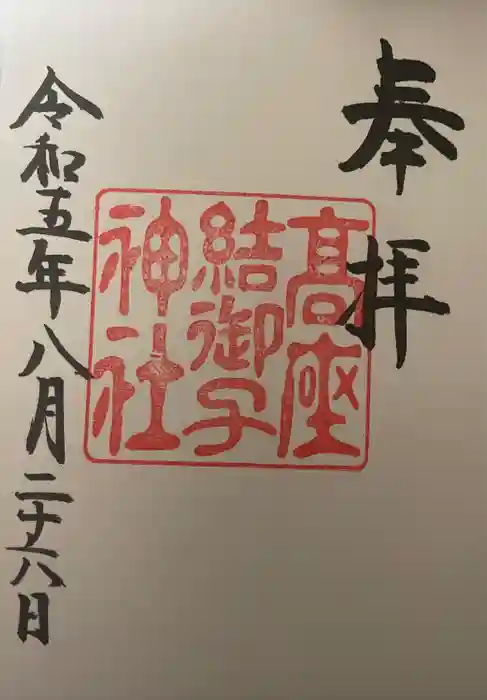 奉拝
髙座
結御子
神社
令和五年八月二十六日